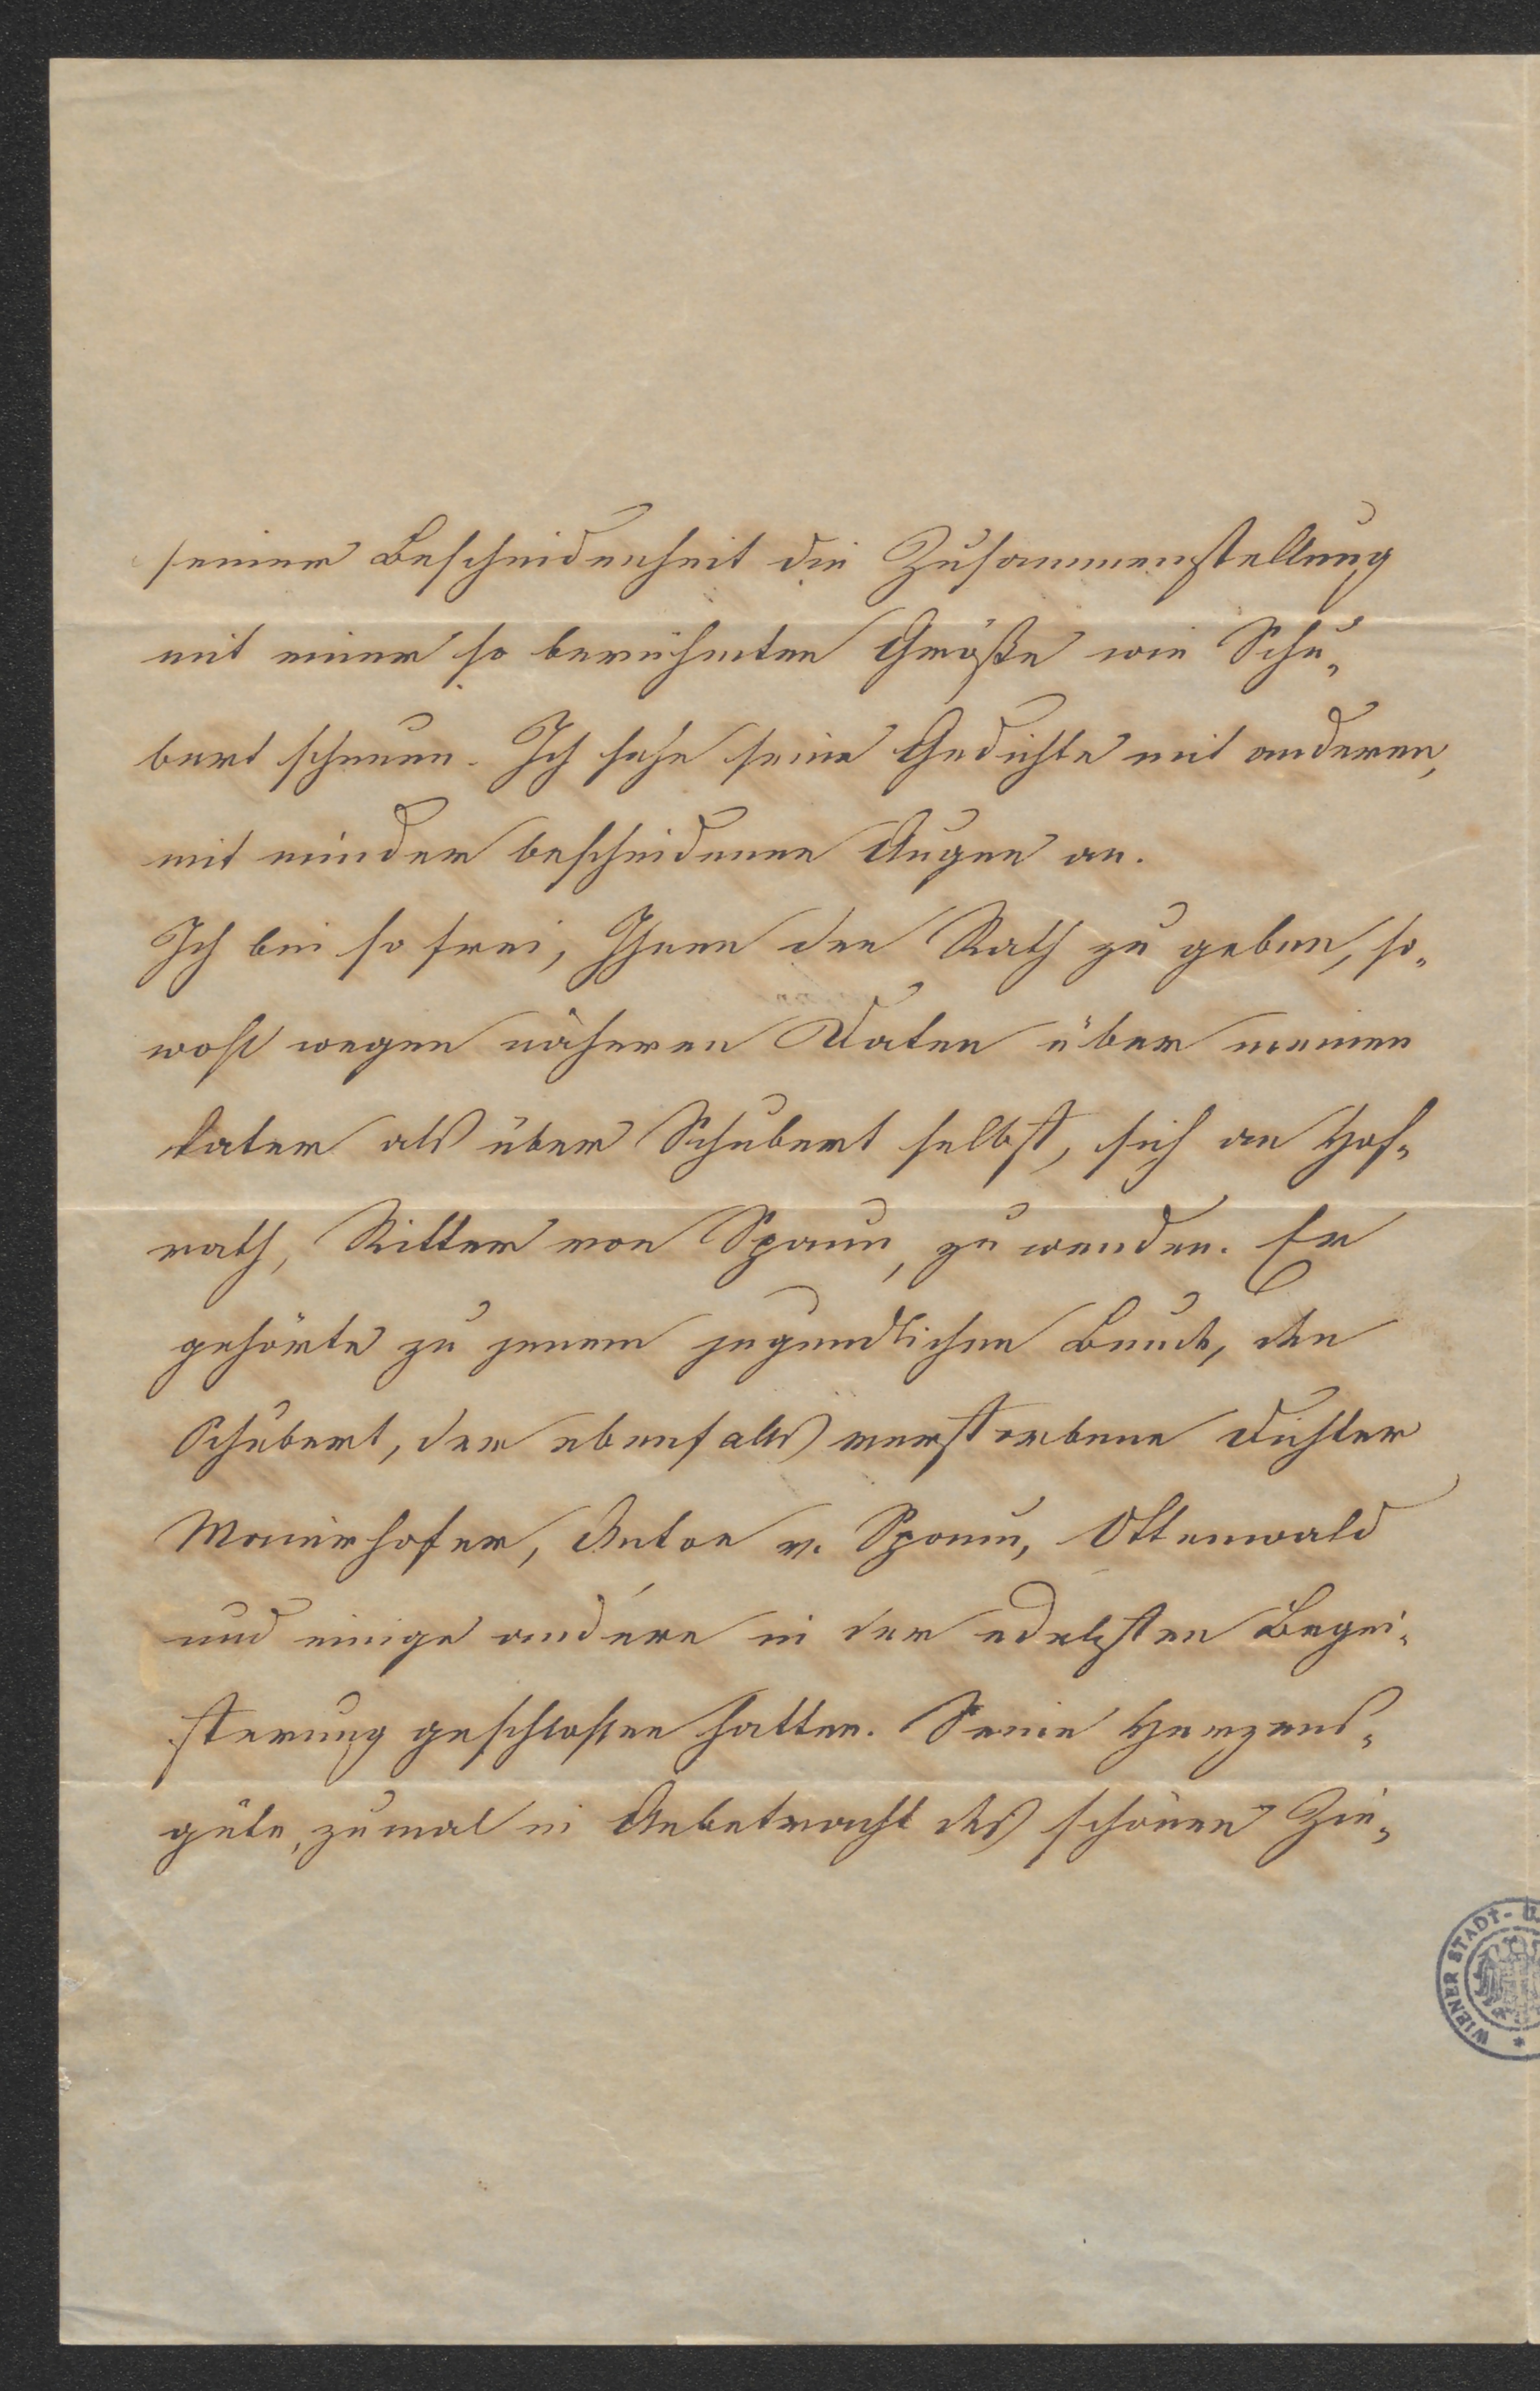 seiner Bescheidenheit die Zusammenstellung
mit einer so berühmten Größe wie Schu-
bert scheuen. Ich sehe seine Gedichte mit anderen,
mit minder bescheidenen Augen an.
Ich bin so frei, Ihnen den Rath zu geben, so-
wohl wegen näheren Daten über meinen
Vater als über Schubert selbst, sich an Hof-
rath, Ritter von Spaun, zu wenden. Er
gehörte zu jenem jugendlichen Bunde, den
Schubert, der ebenfalls verstorbene Dichter
Maierhofer, Anton v. Spaun, Ottenwald
und einige andere in der edelsten Begei-
sterung geschlossen hatten. Seine Herzens-
güte, zumal in Anbetracht des schönen Zie-
WIENER STADT- U.